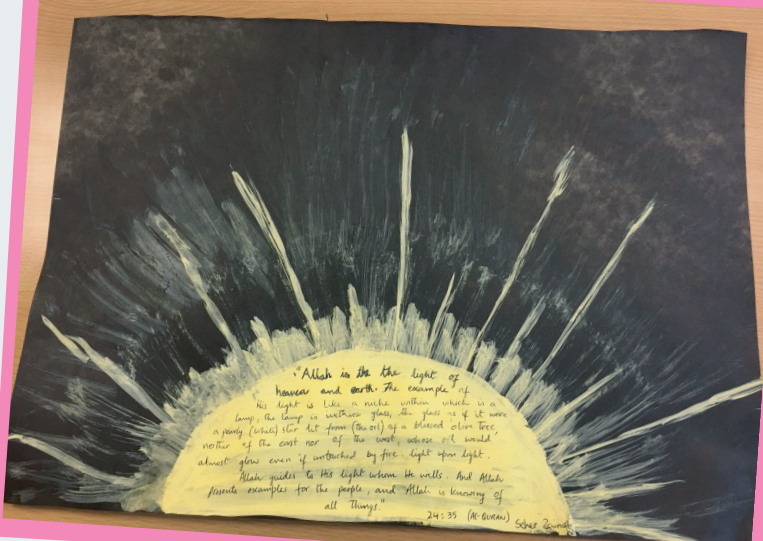 "Allah is the the light of
heaven and earth. The example of
His light is like a niche within which is a
lamp, the lamp is within glass, the glass as if it were
a pearly (white) star lit from (the oil) of a blessed olive tree,
neither of the east nor of the west, whose oil would
almost glow even if untouched by fire. light upon light.
Allah guides to His light whom He wills. And Allah
presents examples for the people, and Allah is knowing of
all things."
24:35 (Al-QURAN)